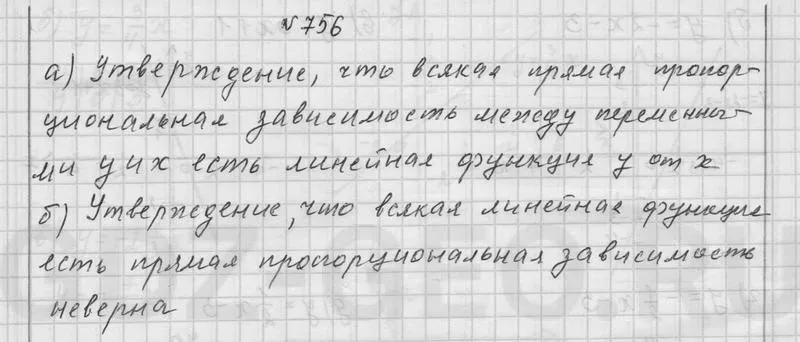 №756
а) Утверждение, что всякая прямая пропор-
циональная зависимость между переменны-
ми y и x есть линейная функция y от x
б) Утверждение, что всякая линейная функция
есть прямая пропорциональная зависимость
неверна